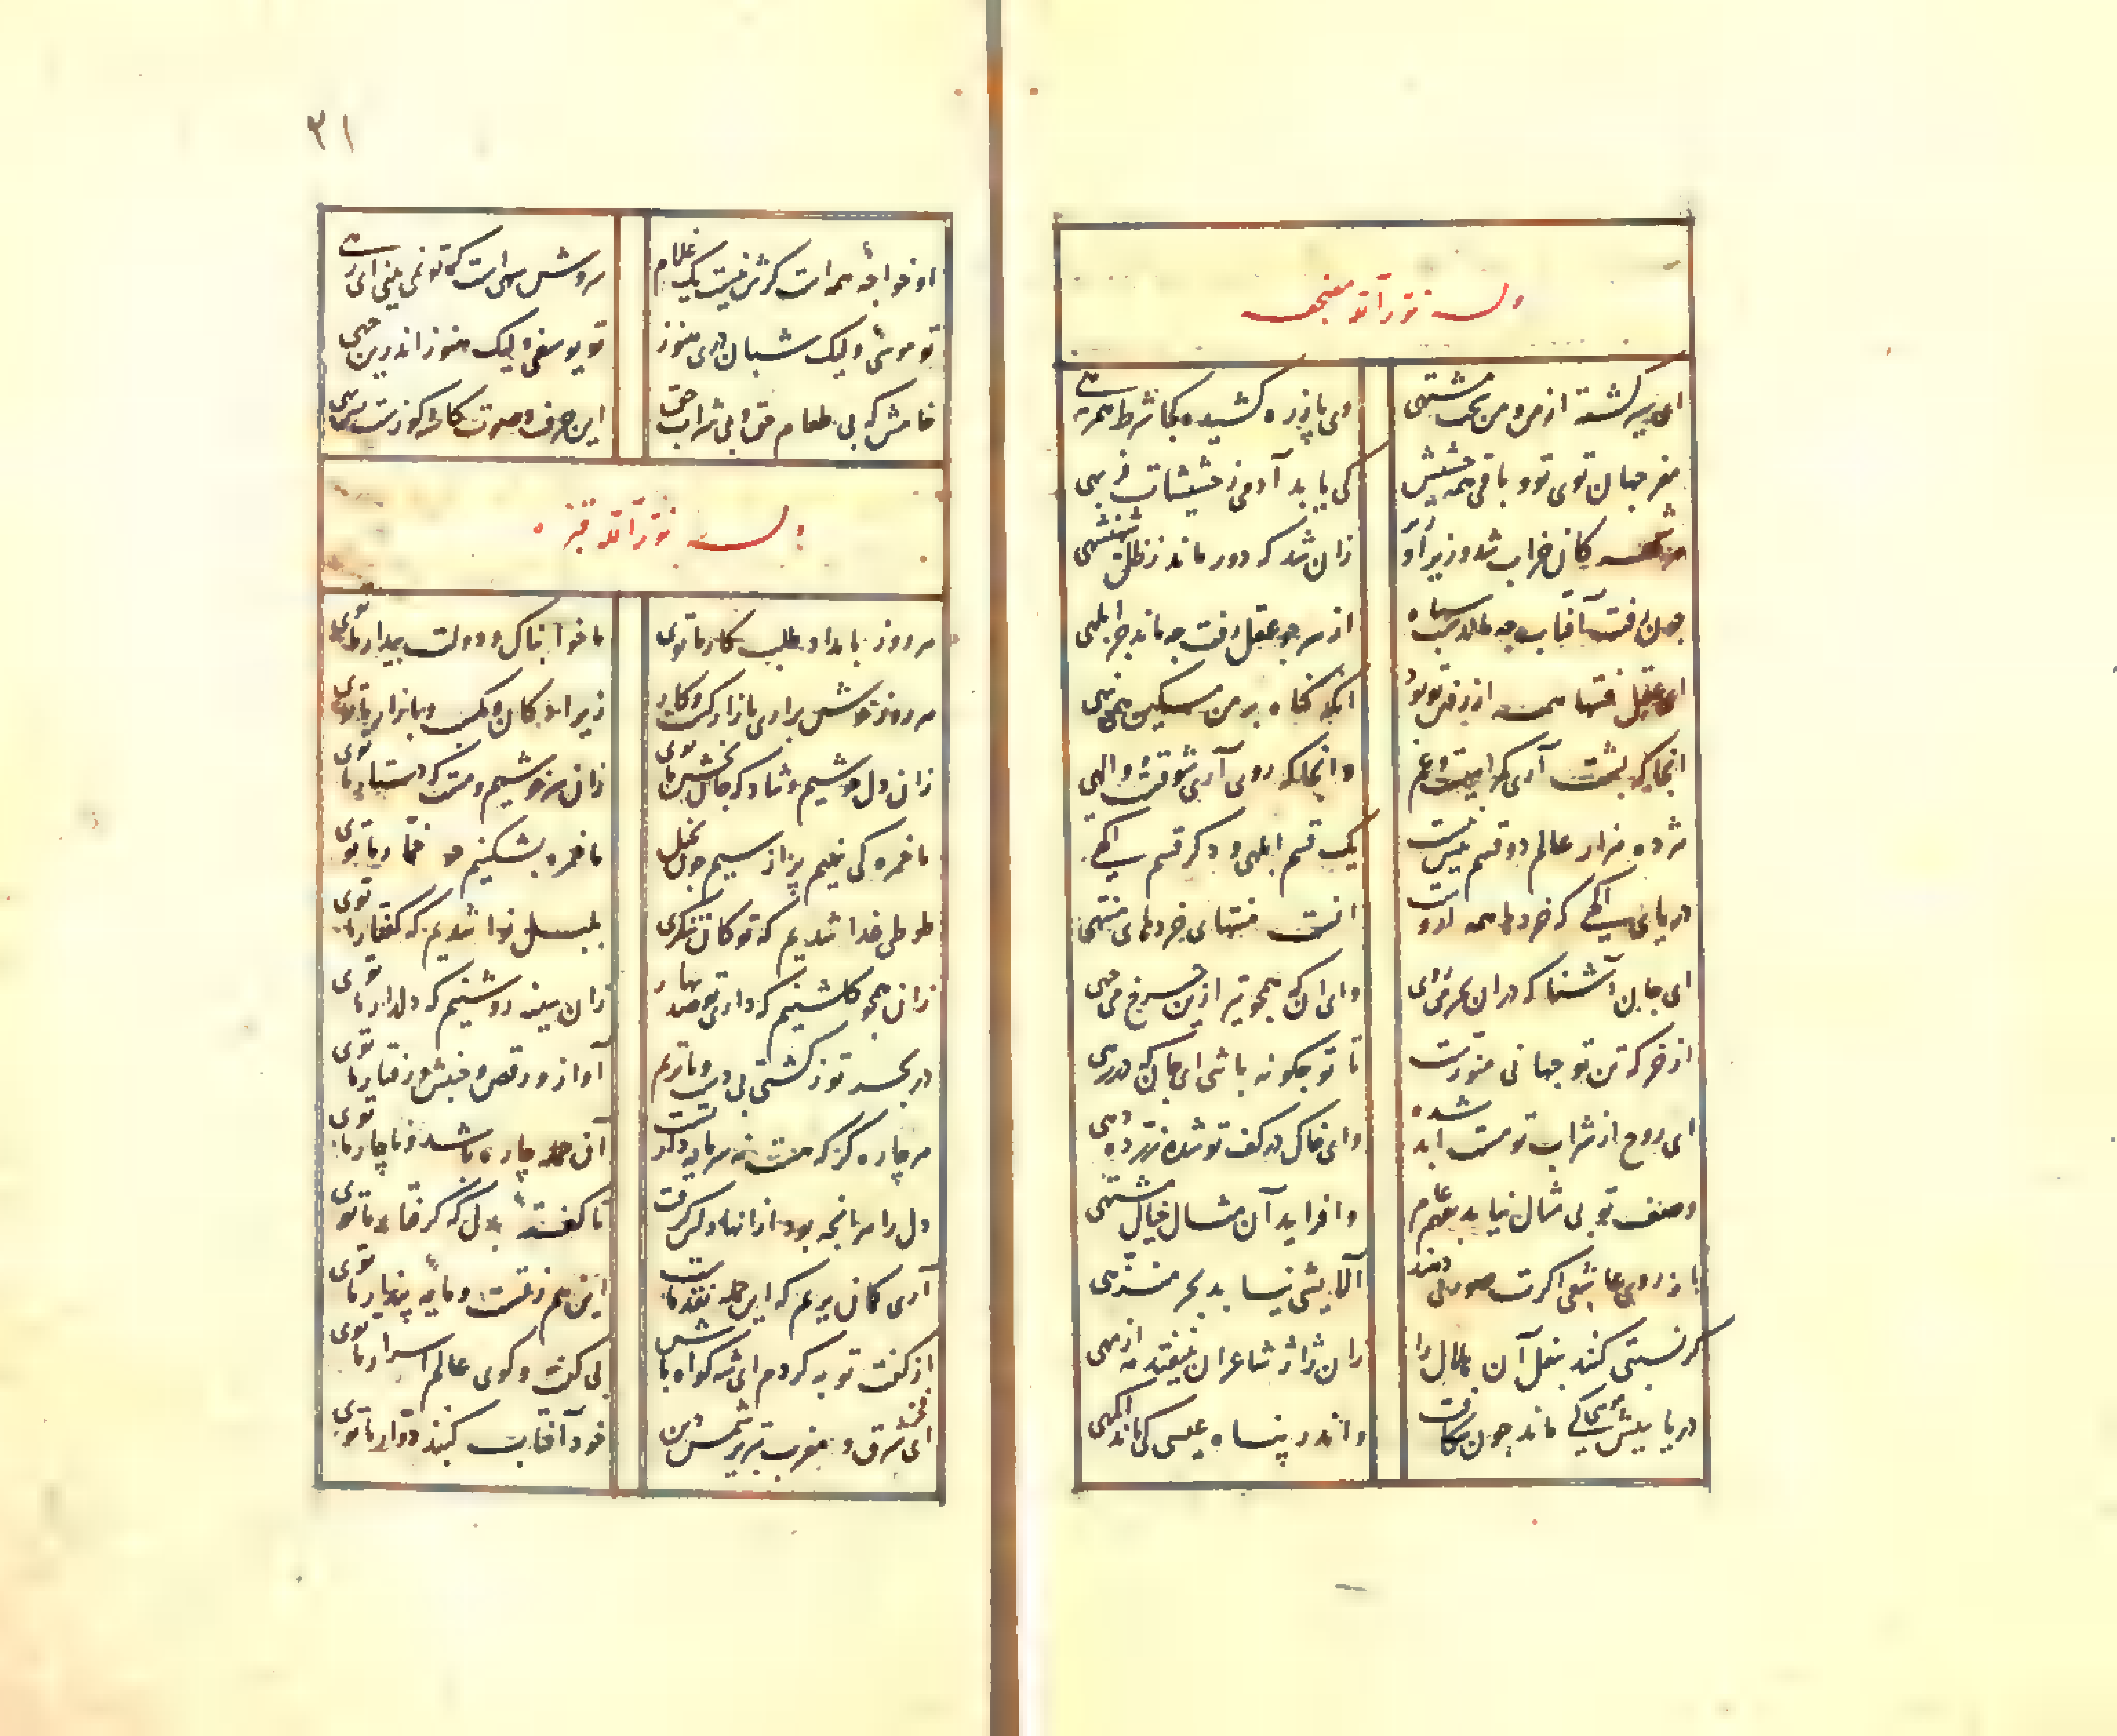 وله نور الله مضجعه
ای سیر گشته از من و من سخت مشتهی
وی پا ز ره کشیده کجا شرط همرهی
مغز جهان توی تو و باقی همه حشیش
کی یابد آدمی ز حشیشات فربهی
هر شهر کان خراب شد و زیر او زبر
زان شد که دور ماند ز ظل شهنشهی
چون رفت آفتاب چه ماند شب سیاه
از سر چو عقل رفت چه ماند جز ابلهی
ای عقل فتنها همه از رفتن تو بود
انگه گناه بر من مسکین می نهی
انجا که پشت آری گمراهیست و غم
وانجا که روی آری شوقست و والهی
هژده هزار عالم دو قسم بیش نیست
یک قسم ابلهی و دگر قسم آگهی
دریای آگهی که خردها همه ازوست
انست منتهای خردهای منتهی
ای جان آشنا که در آن بحر می روی
وای آنکه همچو تیر ازین چرخ می جهی
از خرگه تن تو جهانی منورست
تا تو چگونه باشی ای جان خرگهی
ای روح از شراب تو مست ابد شده
وای خاک در کف تو شده زر ده دهی
وصف تو بی مثال نیاید بفهم عام
وافزاید آن مثال خیال مشبهی
از روی عاشقی اگرت صورتی دهند
آلایشی نیابد بحر منزهی
گر نسبتی کنند بنعل آن هلال را
زان ژاژ شاعران نیفتد مه از مهی
دریا بپیش موسی کی ماند چون شکافت
واندر پناه عیسی کی ماند اکمهی
۳۱
او خواجهٔ همه است گرش نیست یک غلام
سروش سهی است گر تو نمی بینی ای سهی
تو موسئی ولیک شبان دری هنوز
تو یوسفی ولیک هنوز اندرین چهی
خامش که بی طعام حق و بی شراب حق
این حرف و صوت کاسه و کوزه ست تهی
وله نور الله قبره
هر روز بامداد طلب کار ما توی
ما خوابناک و دولت بیدار ما توی
هر روز خوش برآری بازار کسب و کار
زیرا دکان و مکسب و بازار ما توی
زان دل خوشیم و شاد که جان بخش ما توی
زان سرخوشیم و مست که دستار ما توی
ما خمره کی نهیم پر از سیم چون بخیل
ما خمره بشکنیم چو خمار ما توی
طوطی غذا شدیم که تو کان شکری
بلبل نوا شدیم که گلزار ما توی
زان همچو گلشنیم که داری تو صد بهار
زان سینه روشنیم که دلدار ما توی
در بحر تو ز کشتی بی دست و پاتریم
آواز و رقص و جنبش و رفتار ما توی
هر چاره گر که هست نه سرمایه دار تست
آن جمله چاره باشد و ناچار ما توی
دل را هر آنچه بود از آنها دلش گرفت
تا گفتهٔ بدل که گرفتار ما توی
آری گمان بریم که این جمله نقد ماست
این هم ز تست و مایهٔ پندار ما توی
از گفت توبه کردم ای شه گواه باش
بی گفت و گوی عالم اسرار ما توی
ای فخر شرق و مغرب تبریز شمس دین
خود آفتاب گنبد دوار ما توی